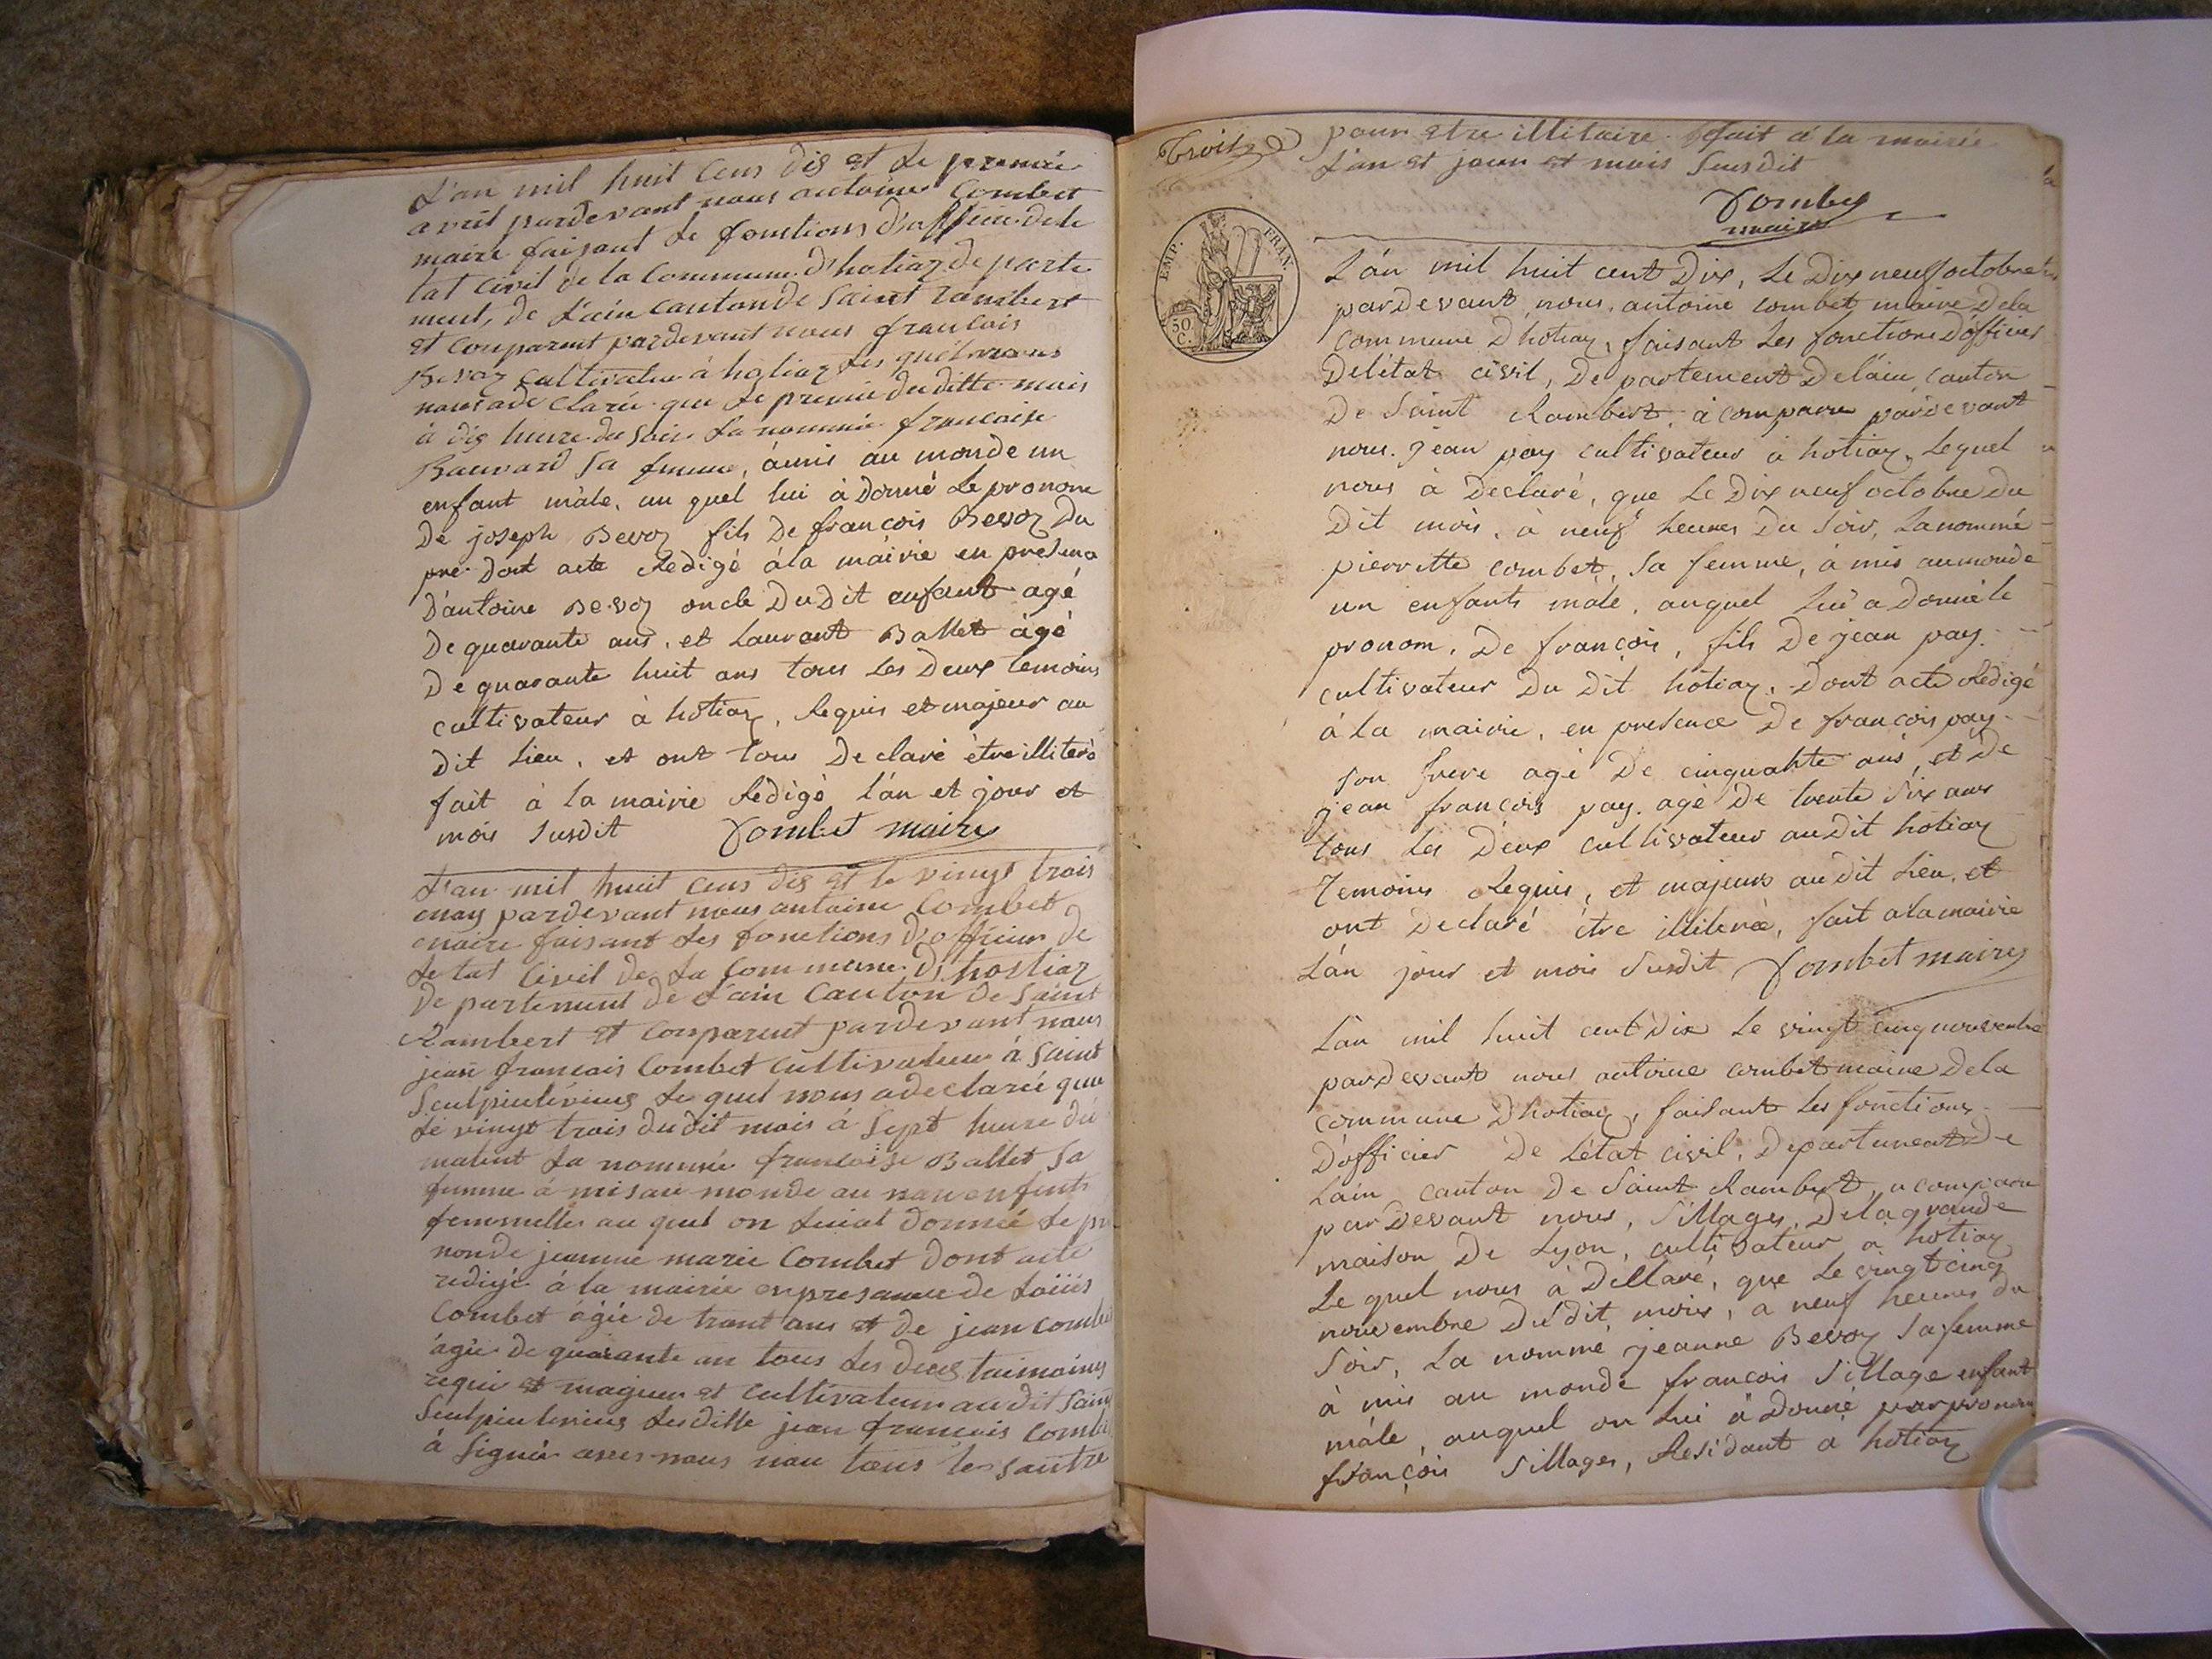 L'an mil huit cens dis et le premié
avril pardevant nous antoine Combet
maire faisant de fonstions d'officié dele
tat civil de la Commune d'hotiaz de parte
ment, de L'ain cantonde Saint Rambert
et Comparent pardevant nous francois
Bevoz cultivateur à hotiaz les quel
nous a de clarée que le premié du ditte mois
à dis heure du soir la nommée francoise
Bauvard sa femme, àmis au monde un
enfant mâle, au quel lui à donné Le pronom
De joseph Bevoz fils De francois Bevoz Du
pré. Dont acte Redigé àla mairie en presence
D'antoine Bevoz oncle Du Dit enfant agé
De quarante ans, et Laurant Ballet àgé
De quarante huit ans tous Les Deux temoins
cultivateur à hôtiaz, Requis et majeur au
dit Lieu, et ont tous Declaré être illiteré
fait à la mairie Redigé L'an et jour et
mois Susdit Combet maire
L'an mil huit cens dis et le vingt trois
may pardevant nous antoine Combet
maire faisant les fonctions d'officier de
Le tat Civil de La Commune D'hostiaz
De partement de L'ain Canton de Saint
Rambert et Comparent pardevant nous
jean francais Combet Cultivateur à Saint
Sculpisulévieus Le quel nous a declarée que
Le vingt trois dudit mois à Sept heure du
matent La nommée francoise Ballet Sa
femme à mis au monde au nau enfent
femmelle au quel on Luiat donnée Le pr
nonde jeanne marie Combet dont acte
redigé à la mairie enpresance de Loüis
Combet àgée de trant ans et de jean Combet
àgée de quarante an tous Les deus taimoins
requi et majeur et Cultivateur au dit Saint
Sculpisulevieus Lesditte jean francais Combet
à Signée avec nous nau tous les sautre
troit
pour etre illitaire. fait à la mairie
L'an et jour et mois Susdit
Combet
maire
EMP. FRAN.
50
C.
L'àn mil huit cent Dix, Le Dix neuf octobre
pardevant nous, antoine combet maire Dela
Commune D'hotiaz, faisant Les fonctions D'officier
Del'état civil, Departement Del'ain, canton
De Saint Rambert, à comparu pardevant
nous. Jean pay cultivateur à hotiaz, Lequel
nous à Declaré, que Le Dix neuf octobre Du
Dit mois, à neuf heures Du Soir, Lanommé
pierrette combet, Sa femme, à mis aumonde
un enfants mâle, auquel Lui a Donné le
pronom, De françois, fils De jean pay.
cultivateur Du Dit hôtiaz, Dont acte Redigé
à la mairie, en presence De francois pay
Son frere agé De cinquante ans, et De
jean françois pay. agé De trente Six ans
tous Les Deux cultivateur audit hotiaz
Temoins Requis, et majeurs audit Lieu, et
ont Declaré être illiteré, fait alamairie
L'àn jour et mois Susdit Combet maire
L'àn mil huit cent Dix Le vingt cinq novembre
pardevant nous antoine combet maire Dela
commune D'hotiaz, faisant Les fonctions
D'officier De L'état civil, Departement De
L'ain canton De Saint Rambert, a comparu
par Devant nous, Sillages, Dela grande
maison De Lyon, cultivateur à hotiaz
Le quel nous à Déllaré, que Le vingt cinq
novembre Du dit mois, à neuf heures du
Soir, La nommé jeanne Bevoz Sa femme
à mis au monde francois Sillage enfant
mâle, auquel on Lui à Donné par pronom
françois Sillages, Residant à hotiaz